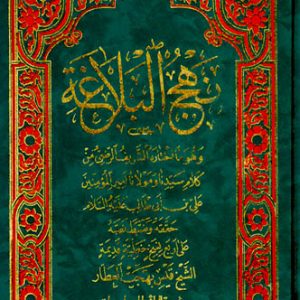 نهج البلاغة
وهو ما اختاره الشريف الرضي من
كلام سيدنا ومولانا أمير المؤمنين
علي بن أبي طالب عليه السلام
حققه وضبط نصه
على أربع نسخ خطية قديمة
الشيخ قيس بهجت العطار